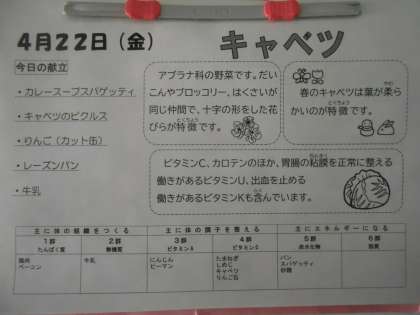 4月22日（金）
キャベツ
今日の献立
・カレースープスパゲッティ
・キャベツのピクルス
・りんご（カット缶）
・レーズンパン
・牛乳
アブラナ科の野菜です。だい
こんやブロッコリー、はくさいが
同じ仲間で、十字の形をした花
びらが特徴です。
春のキャベツは葉が柔ら
かいのが特徴です。
ビタミンC、カロテンのほか、胃腸の粘膜を正常に整える
働きがあるビタミンU、出血を止める
働きがあるビタミンKも含んでいます。
主に体の組織をつくる 主に体の調子を整える 主にエネルギーになる
1群 2群 3群 4群 5群 6群
たんぱく質 無機質 ビタミンA ビタミンC 炭水化物 脂質
鶏肉 牛乳 にんじん たまねぎ パン
ベーコン ピーマン しめじ スパゲティ
キャベツ 砂糖
りんご缶